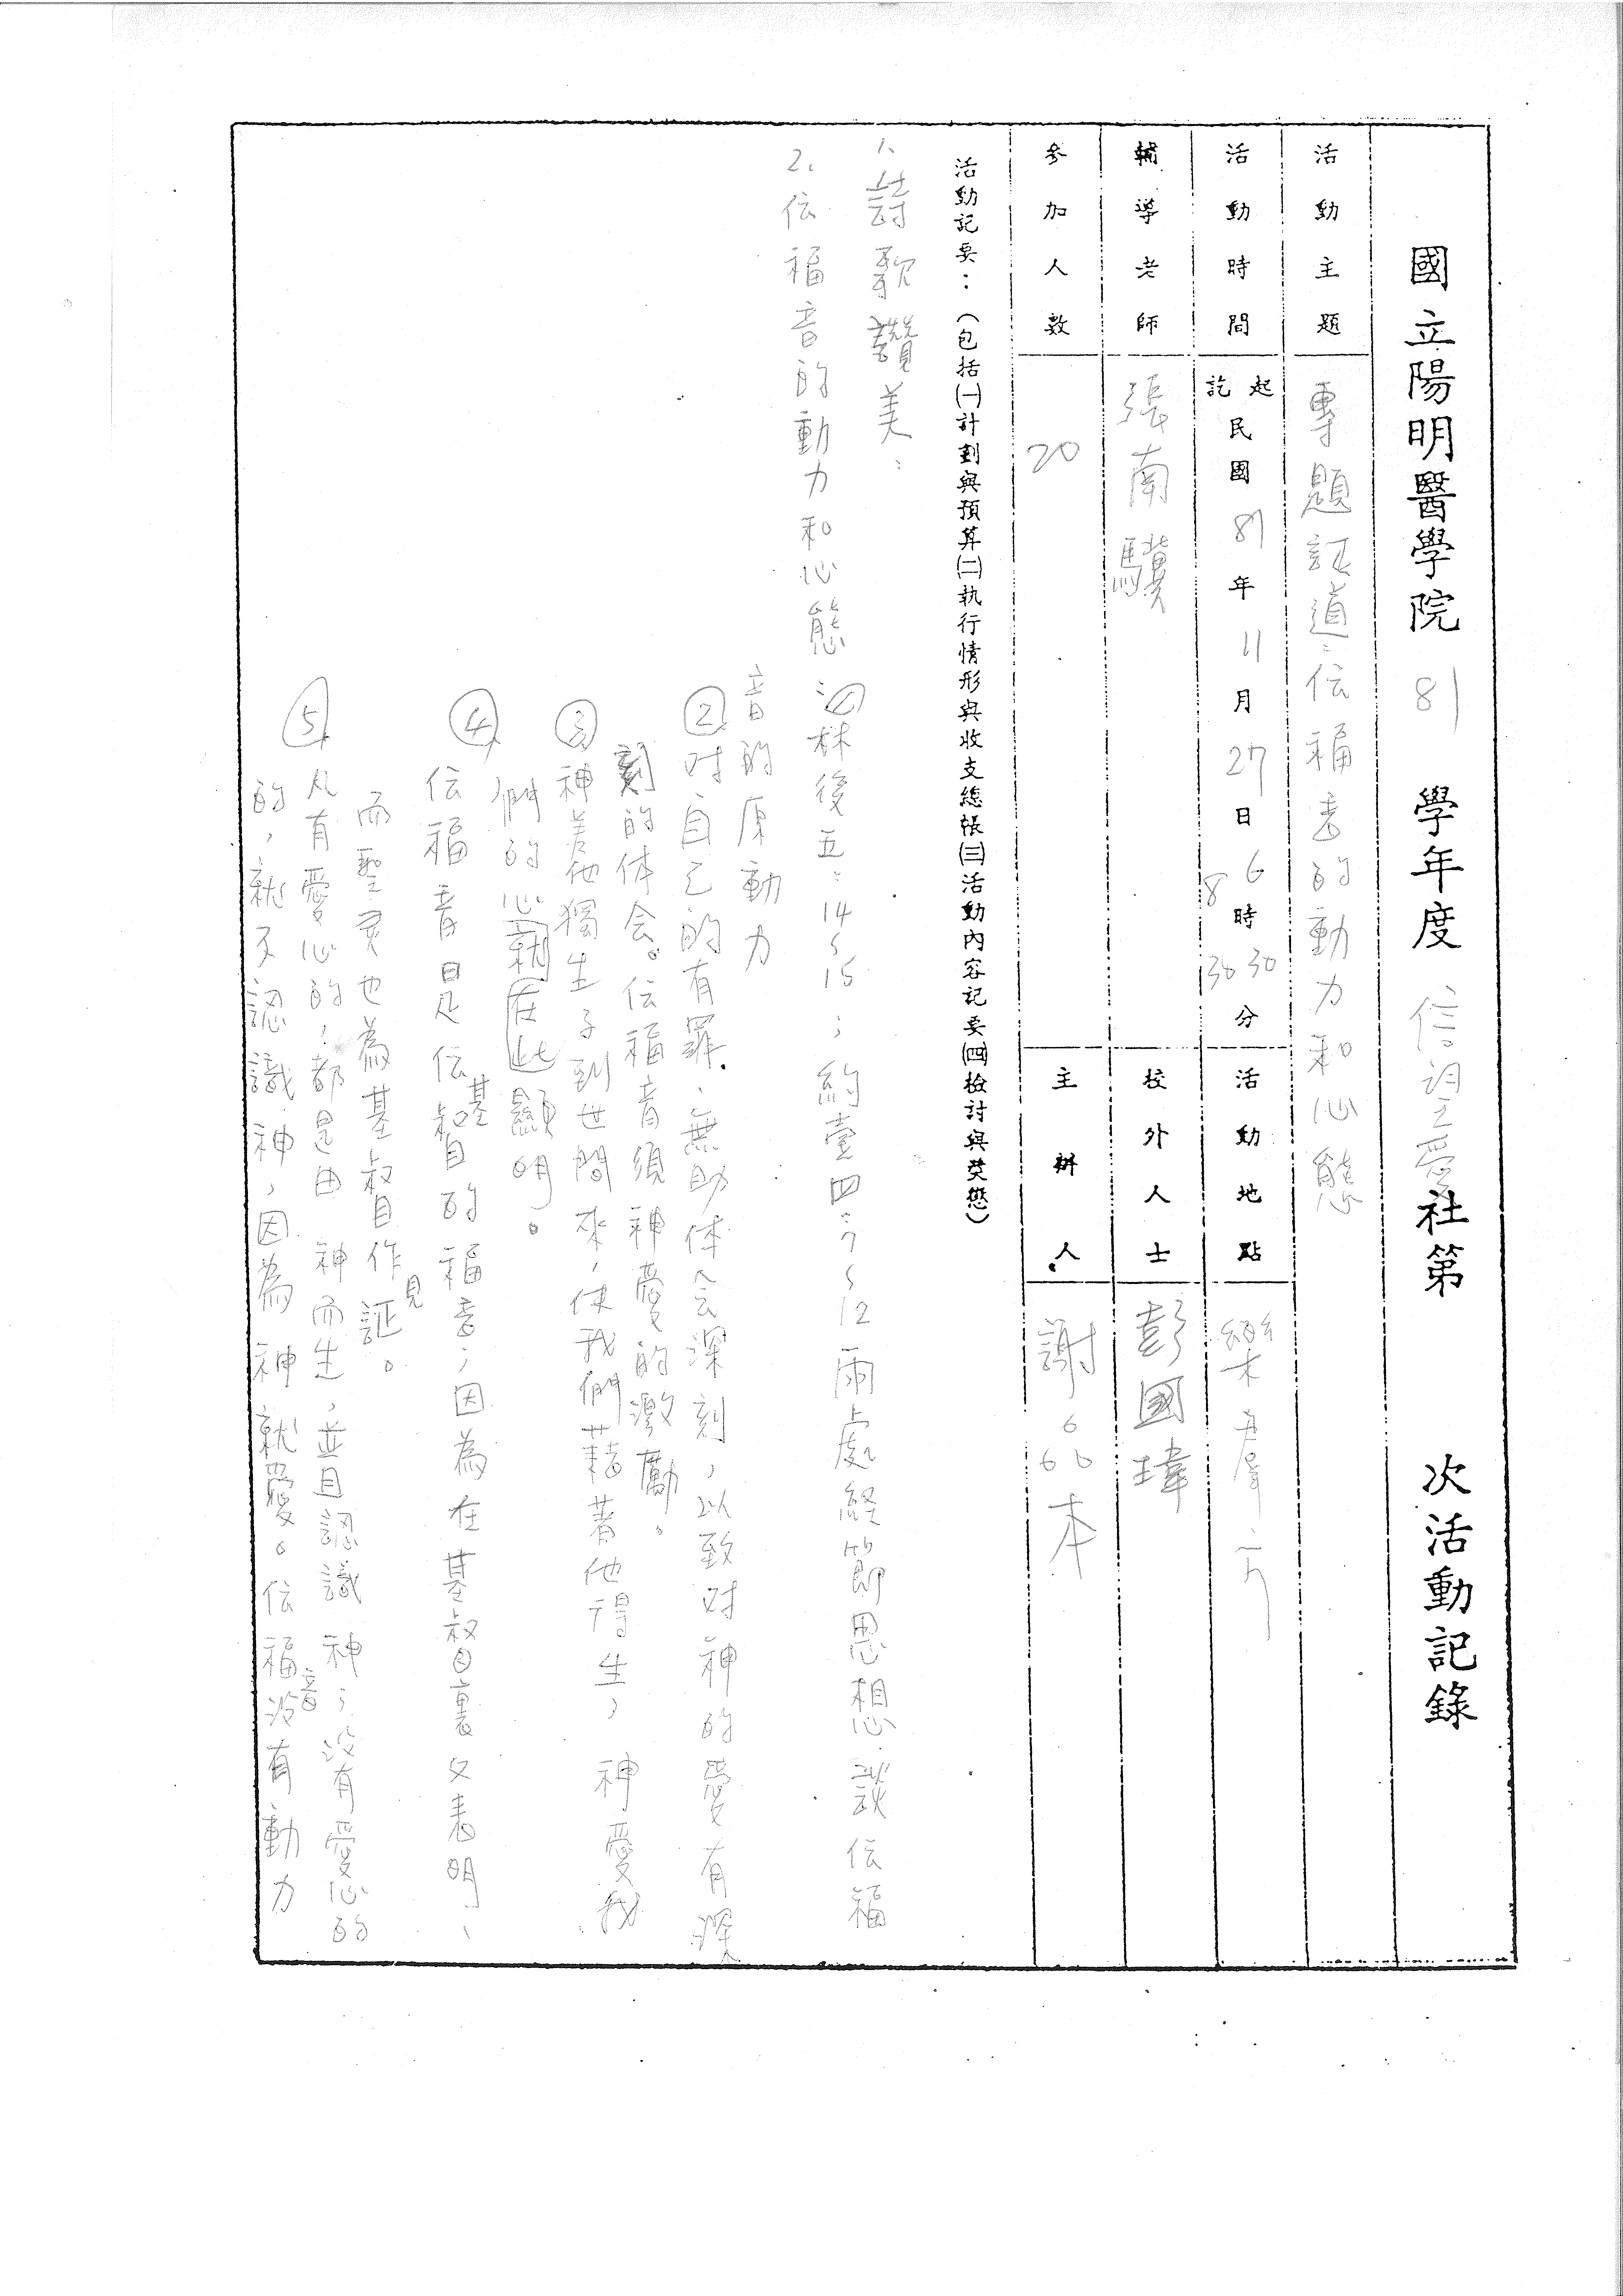 國立陽明醫學院 81 學年度 信望愛社第 次活動記錄
活動主題 專題証道：伝福音的動力和心態
活動時間 起訖 民國81年11月27日 6時30分 8 30 活動地點 樂群
輔導老師 張南驥 校外人士 彭國瑋
參加人數 20 主辦人 謝 本
活動記要：（包括㈠計劃與預算㈡執行情形與收支總帳㈢活動內容記要㈣檢討與獎懲）
1、詩歌讚美：
2、伝福音的動力和心態：①林後五：14～15；約壹四：7～12兩處経節思想、談伝福
音的原動力
②对自己的有罪、無助体会深刻，以致对神的愛有深
刻的体会。伝福音須神愛的激勵。
③神差他獨生子到世間來，使我們藉著他得生，神愛我
們的心就在此顯明。
④伝福音是伝基督的福音，因為在基督裏父表明、
而聖灵也為基督作見証。
⑤凡有愛心的，都是由神而生，並且認識神；沒有愛心的
的，就不認識神，因為神就愛。伝福音沒有動力